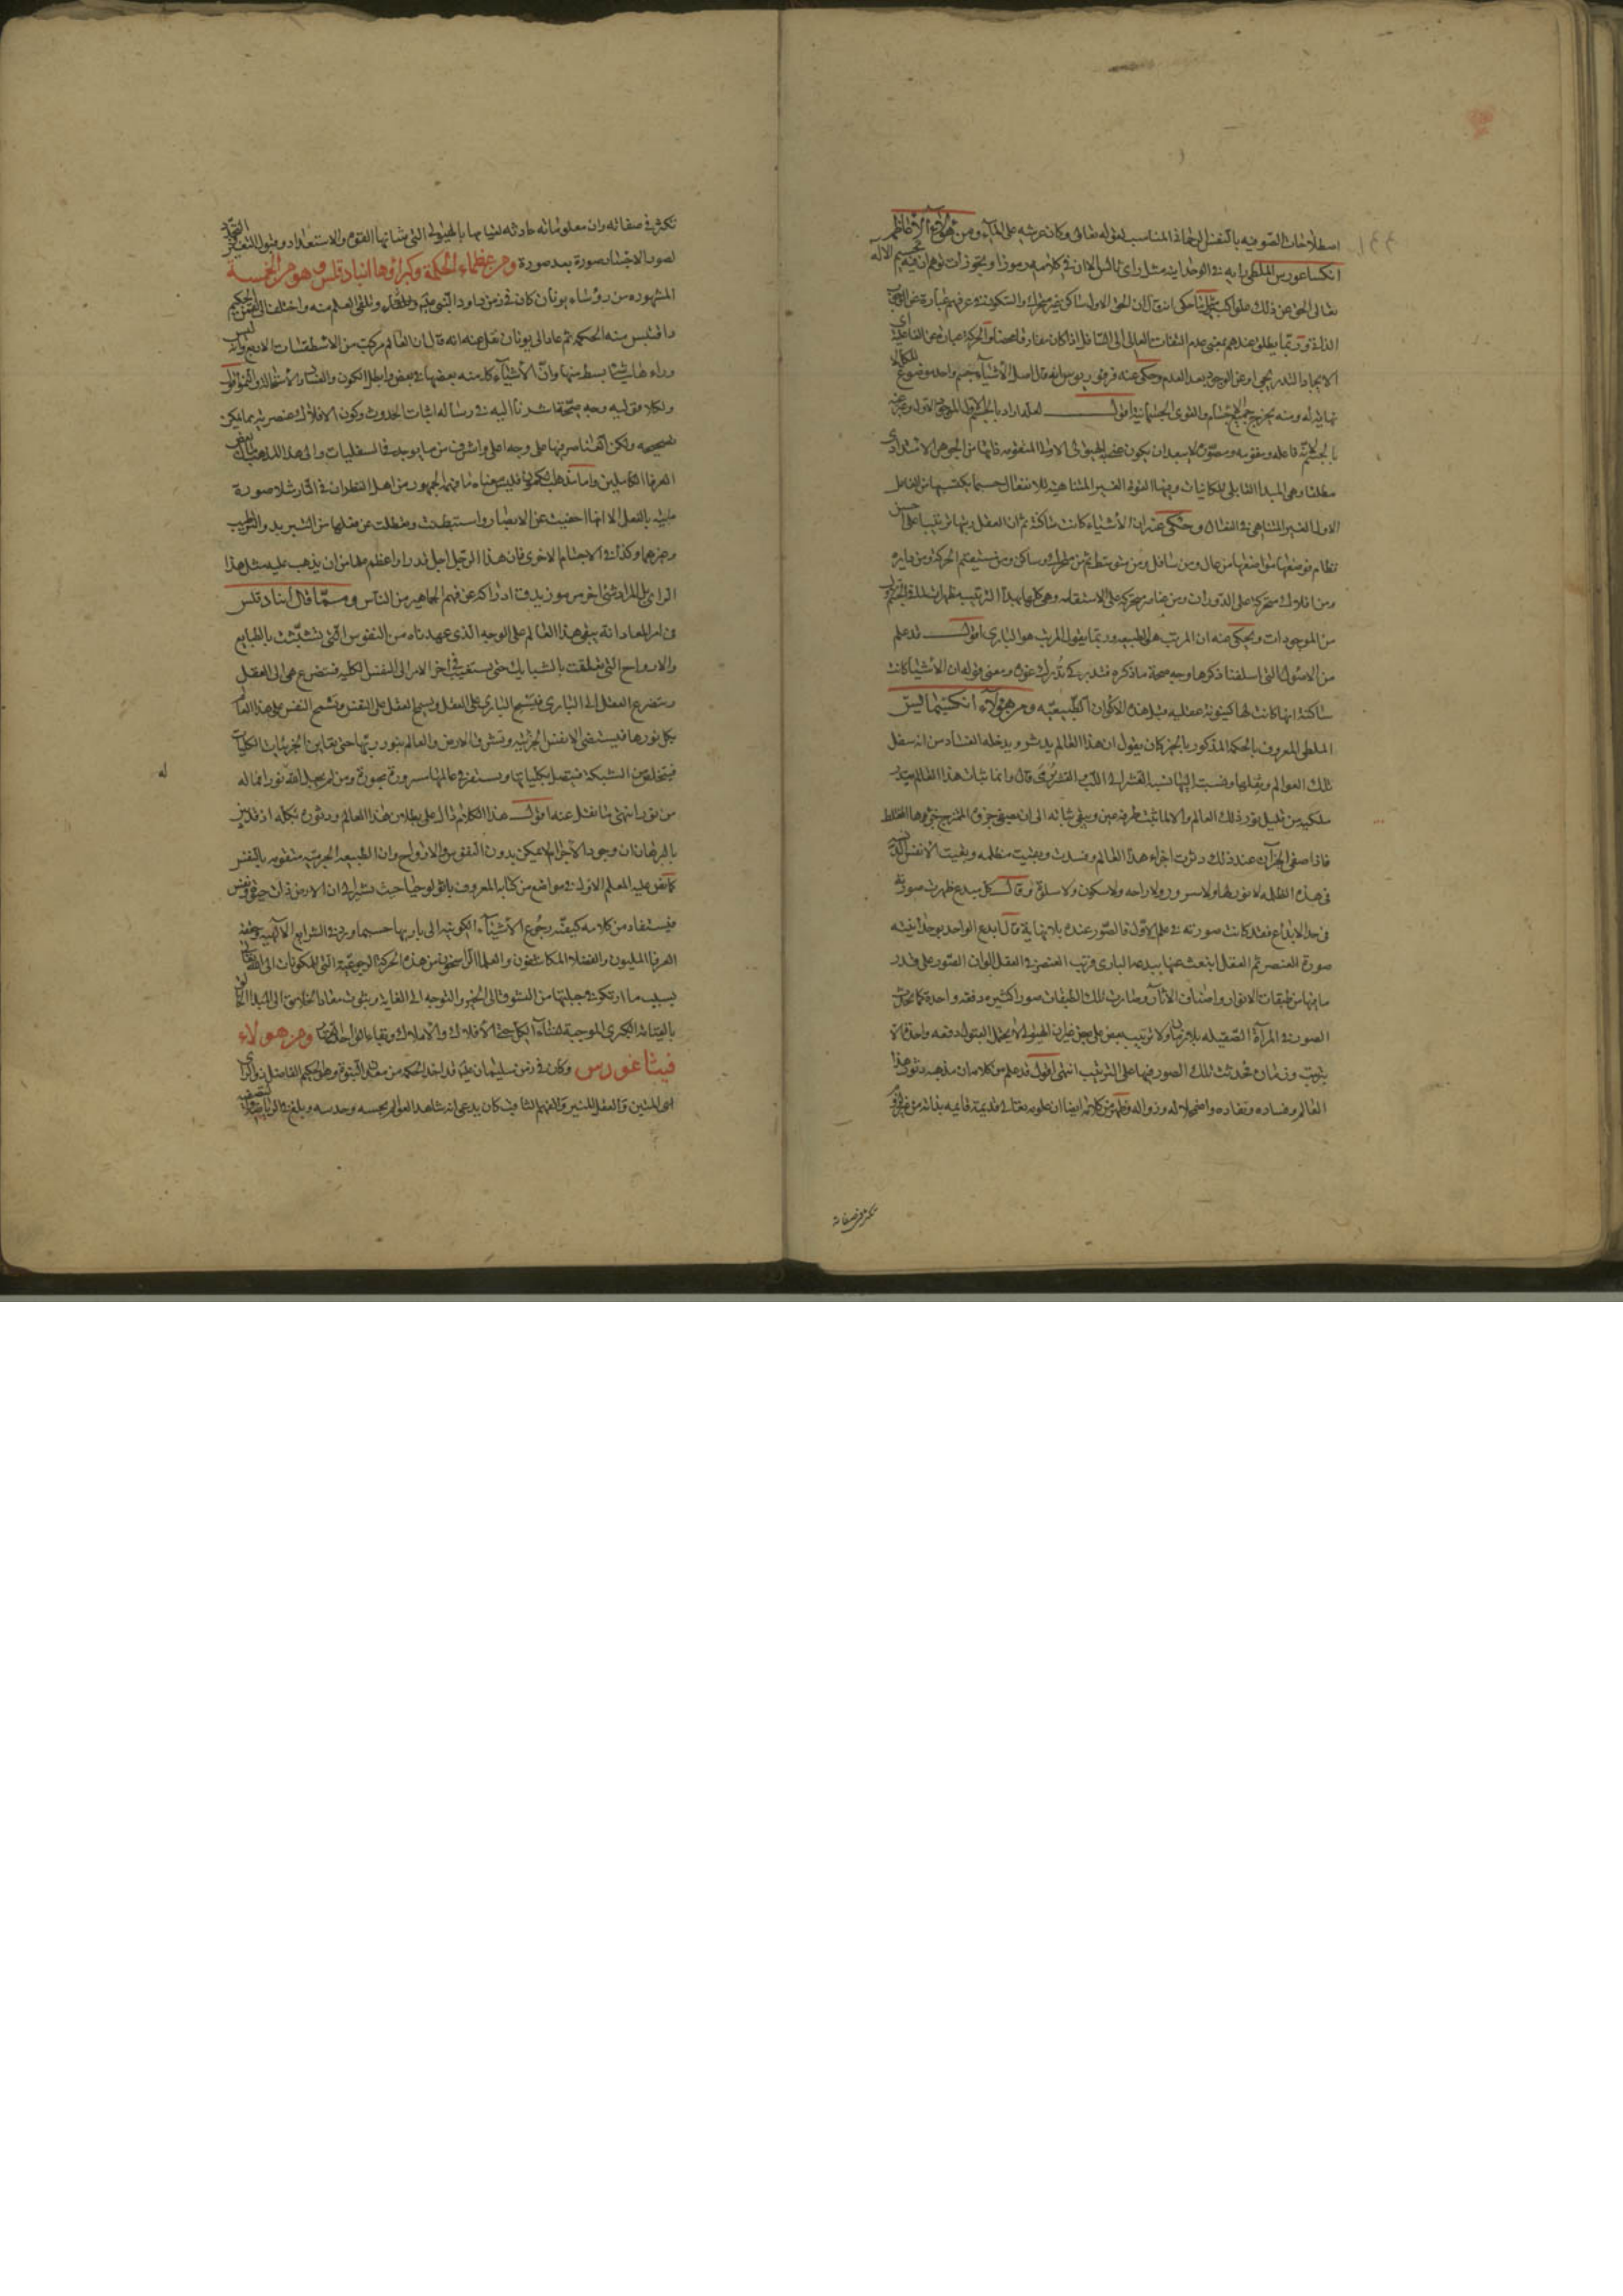 اصطلاحات الصوفيه بالنفس الرحماني المناسب لقوله تعالى وكان عرشه على الماء ومن هؤلاء الأفاضل
انكساغورس الملطي رايه في الوحدانيه مثل راى ثالس الا ان في كلامه رموزا وتجوزات توهم ان فيه تجسيم الاله
تعالى الحق عن ذلك علوا كبيرا حكى انه قال ان الحق الاول ساكن غير متحرك والسكون في عرفهم عبارة عن
وربما يطلق عندهم بمعنى عدم التفات العالى الى السافل اذا كان مفارقا محضا والحركة عبارة عن الفاعلية اى
الايجاد التدريجي او عن الوجود بعد العدم وحكى عنه فرفوريوس انه قال اصل الأشياء جسم واحد موضوع الكل لا
نهاية له ومنه يخرج جميع الاجسام والقوى الجسمانية اقول لعله اراد بالجسم
من الجوهر الامتدادى
مطلقا وهى المبدا القابلى للكائنات وفيها القوة الغير المتناهية للانفعال حسبما يكتسبها من الفاعل
الاول الغير المتناهى في الفعال وحكى عنه ان الأشياء كانت ساكنة ثم ان العقل رتبها ترتيبا على احسن
نظام فوضعها مواضعها من عال ومن سافل ومن متوسط ثم من متحرك وساكن ومن مستقيم الحركة ومن دايره
ومن افلاك متحركة على الدوران ومن عناصر متحركة على الاستقامه وهى كلها بهذا الترتيب مظهرات
من الموجودات ويحكى عنه ان المرتب هو الطبيعه وربما يقول المرتب هو البارى اقول قد علم
من الاصول التى اسلفنا ذكرها وجه صحة ما ذكره فتدبر كى تدرك غوره ومعنى قوله ان الأشياء كانت
ساكنة انها كانت لها كينونة عقليه قبل هذه الاكوان الطبيعيه ومن هؤلاء انكسيمانس
الملطى المعروف بالحكمة المذكور بالخير كان يقول ان هذا العالم يدثر ويدخله الفساد من انه سفل
تلك العوالم وثقلها ونسبته اليها نسبة القشر الى اللب القشر يرمى قال وانما ثبات هذا العالم بقدر
ما فيه من قليل نور ذلك العالم والا لما ثبت طرفة عين ويبقى ثباته الى ان يصفى جزؤه الممتزج جزءها المختلط
فاذا صفى الجزآن عند ذلك دثرت اجزاء هذا العالم وفسدت وبقيت مظلمه وبقيت الانفس الدنسه
فى هذه الظلمه لا نور لها ولا سرور ولا راحه ولا سكون ولا سلوة وقال كل مبدع ظهرت صورته
فى حد الابداع فقد كانت صورته في علم الاول فالصور عنده بلا نهاية قال ابدع الواحد بوحدانيته
صورة العنصر ثم العقل انبعث عنها ببدعة البارى فرتب العنصر في العقل الوان الصور على قدر
ما فيها من طبقات الانوار واصناف الاثار وصارت تلك الطبقات صورا كثيره دفعه واحدة كما تحدث
الصور في المرآة الصقيله بلا زمان ولا ترتيب بعض على بعض غير ان الهيولى لا يحتمل القبول دفعه واحدة الا
بترتيب وزمان فحدثت تلك الصور فيها على الترتيب انتهى اقول قد علم من كلامه ان مذهبه دثور هذا
العالم وفساده ونفاده واضمحلاله وزواله وعلم من كلامه ايضا ان علومه تعالى قديمة قايمه بذاته من غير
تكثر فى صفاته
تكثر فى صفاته وان معلوماته حادثه لقيامها بالهيولى التى شانها القوه والاستعداد وقبول التغير التجدد
لصور الاجسام صورة بعد صورة ومن عظماء الحكمة وكبراؤها انباد قلس وهو من الخمسة
المشهوره من رؤساء يونان كان فى زمن داود النبى عليه وتلقى العلم منه واختلف الى لقمن الحكيم
واقتبس منه الحكمه ثم عاد الى يونان نقل عنه انه قال ان العالم مركب من الاسطقسات الاربع وانه ليس
وراءها شى ابسط منها وان الأشياء كامنه بعضها فى بعض وابطل الكون والفساد والاستحاله والنمو اقول
ولكلا قوليه وجه صحة قد اشرنا اليه في رساله اثبات الحدوث وكون الافلاك عنصريه مما يمكن
تصحيحه ولكن العناصر فيها على وجه اعلى واشرف من ما يوجد فى السفليات والى هذا المذهب مال بعض
العرفا الكاملين واما مذهب الكمون فليس معناه ما فهمه الجمهور من اهل النظر ان فى النار مثلا صورة
مايئه بالفعل الا انها اختفيت عن الابصار واستبطنت وعطلت عن فعلها من التبريد والترطيب
وغيرهما وكذا في الاجسام الاخرى فان هذا الرجل اجل قدرا واعظم مقاما من ان يذهب عليه مثل هذا
الراى بل المراد شى اخر مرموز يدق ادراكه عن فهم الجماهير من الناس ومما قال انباد قلس
فى امر المعاد انه يبقى هذا العالم على الوجه الذى عهدناه من النفوس التى تشبثت بالطبايع
والارواح التى تعلقت بالشبايك حتى يستغيث فى اخر الامر الى النفس الكليه فتضرع هى الى العقل
ويتضرع العقل الى البارى فيسيح البارى على العقل ويسيح العقل على النفس وتسيح النفس على هذا العالم
بكل نورها فيستضى الانفس الجزئيه وتشرق الارض والعالم بنور ربها حتى يعاين الجزئيات الكليات
فيتخلص من الشبكة فيتصل بكلياتها ويستقر في عالمها مسرورة محبورة ومن لم يجعل الله نورا فما له
له
من نور انتهى ما نقل عنه اقول هذا الكلام دال على بطلان هذا العالم ودثوره بكله اذ قد تبين
بالبرهان ان وجود الاجرام لا يمكن بدون النفوس والارواح وان الطبيعه الجرميه متقومه بالنفس
كما نص عليه المعلم الاول في مواضع من كتابه المعروف باثولوجيا حيث يشير الى ان الارض ذات حيوة ونفس
فيستفاد من كلامه كيفية رجوع الأشياء الكونية الى باريها حسبما ورد في الشرايع الالهيه
العرفا المليون والفضلا المكاشفون والعلما الراسخون من هذه الحركة الرجوعية التى للمكونات الى الله تعالى
بسبب ما ارتكز في جبلتها من الشوق الى الخير والتوجه الى الغايه وبثوت معاد الخلايق الى المبدا الخالق
بالقيامة الكبرى الموجبة لفناء الكل حتى الأفلاك والاملاك وبقاء الواحد القهار ومن هولاء
فيثاغورس وكان فى زمن سليمان عليه قد اخذ الحكمه من معدن النبوة وهو الحكيم الفاضل ذو الراى
المتين والعقل المنير والفهم الثاقب كان يدعى انه شاهد العوالم بحسه وحدسه وبلغ في الرياضه